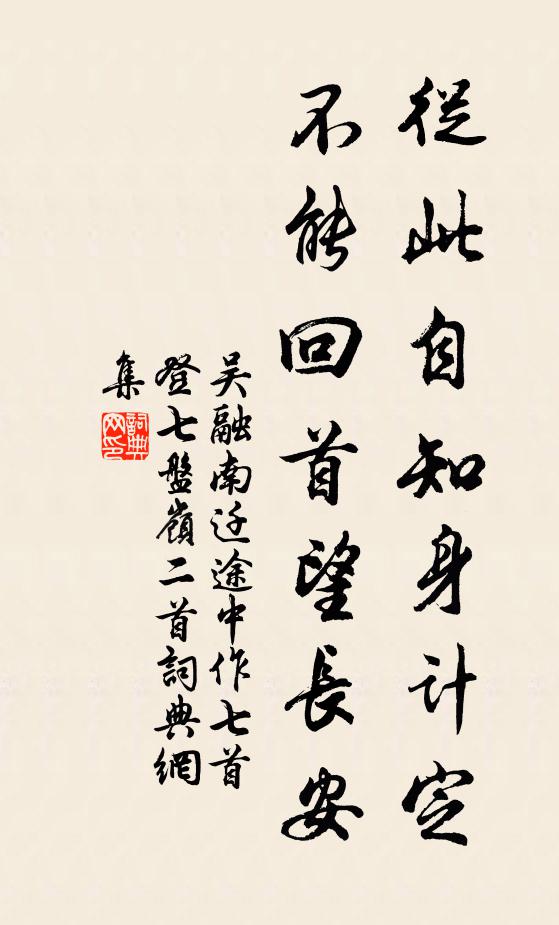 從此自知身計定
不能回首望長安
吳融南迁途中作七首
登七盤嶺二首詞典網
集
詞典网印